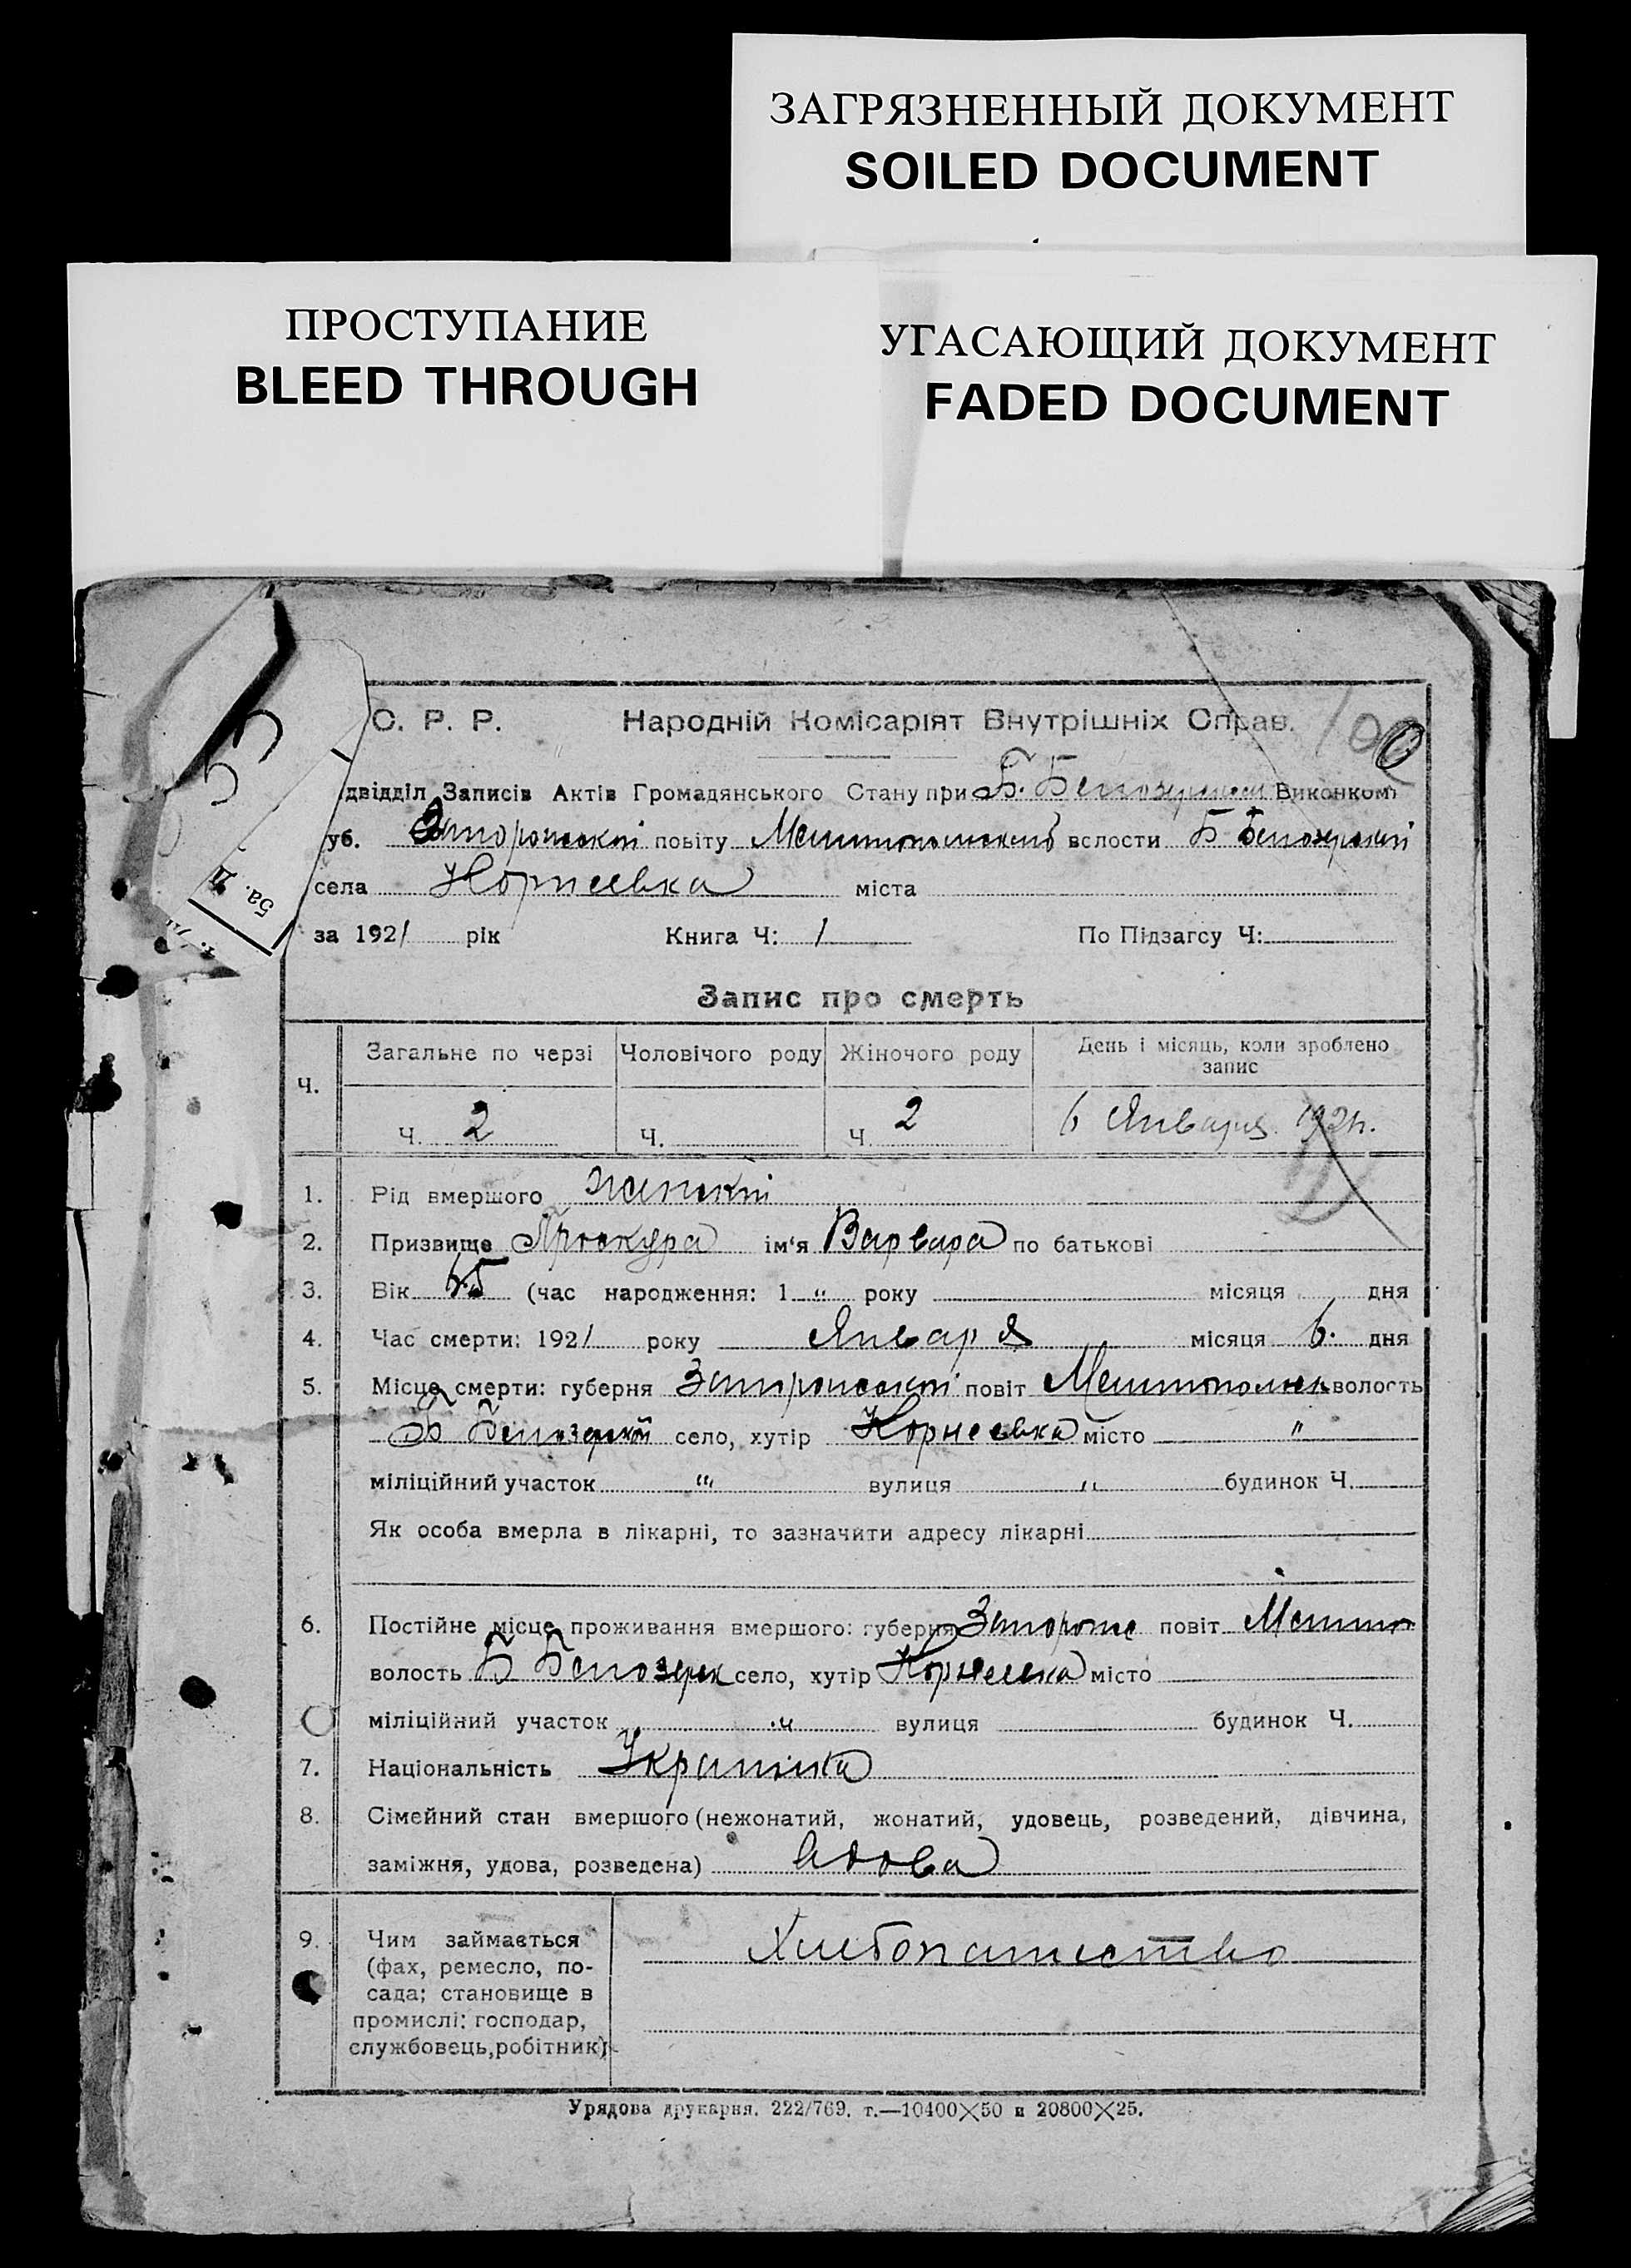 ЗАГРЯЗНЕННЫЙ ДОКУМЕНТ
SOILED DOCUMENT
ПРОСТУПАНИЕ
BLEED THROUGH
УГАСАЮЩИЙ ДОКУМЕНТ
FADED DOCUMENT
С. Р. Р. Народній Комісаріят Внутрішніх Справ. 100
двідділ Записів Актів Громадянського Стану при Б. Белозерском Виконкомі
уб. Запорожской повіту Мелитопольский вслости Б Белозерской
села Корнеевка міста
за 1921 рік Книга Ч: 1 По Підзагсу Ч:
5а.
Запис про смерть
Ч. Загальне по черзі Чоловічого роду Жіночого роду День і місяць, коли зроблено запис
Ч. 2 Ч. Ч. 2 6 Января 1921г.
1. Рід вмершого женский
2. Призвище Проскура ім‘я Варвара по батькові
3. Вік 65 (час народження: 1 „ року місяця дня
4. Час смерти: 1921 року Января місяця 6. дня
5. Місце смерти: губерня Запорожской повіт Мелитопольск волость
Б Белозерской село, хутір Корнеевка місто "
міліційний участок " вулиця " будинок Ч.
Як особа вмерла в лікарні, то зазначити адресу лікарні
6. Постійне місце проживання вмершого: губерня Запорож повіт Мелито
волость Б Белозерск село, хутір Корнеевка місто
міліційний участок " вулиця будинок Ч.
7. Національність Українка
8. Сімейний стан вмершого (нежонатий, жонатий, удовець, розведений, дівчина,
заміжня, удова, розведена) вдова
9. Чим займається Хлебопашество
(фах, ремесло, по-
сада; становище в
промислі: господар,
службовець, робітник)
Урядова друкарня. 222/769. т.—10400×50 и 20800×25.